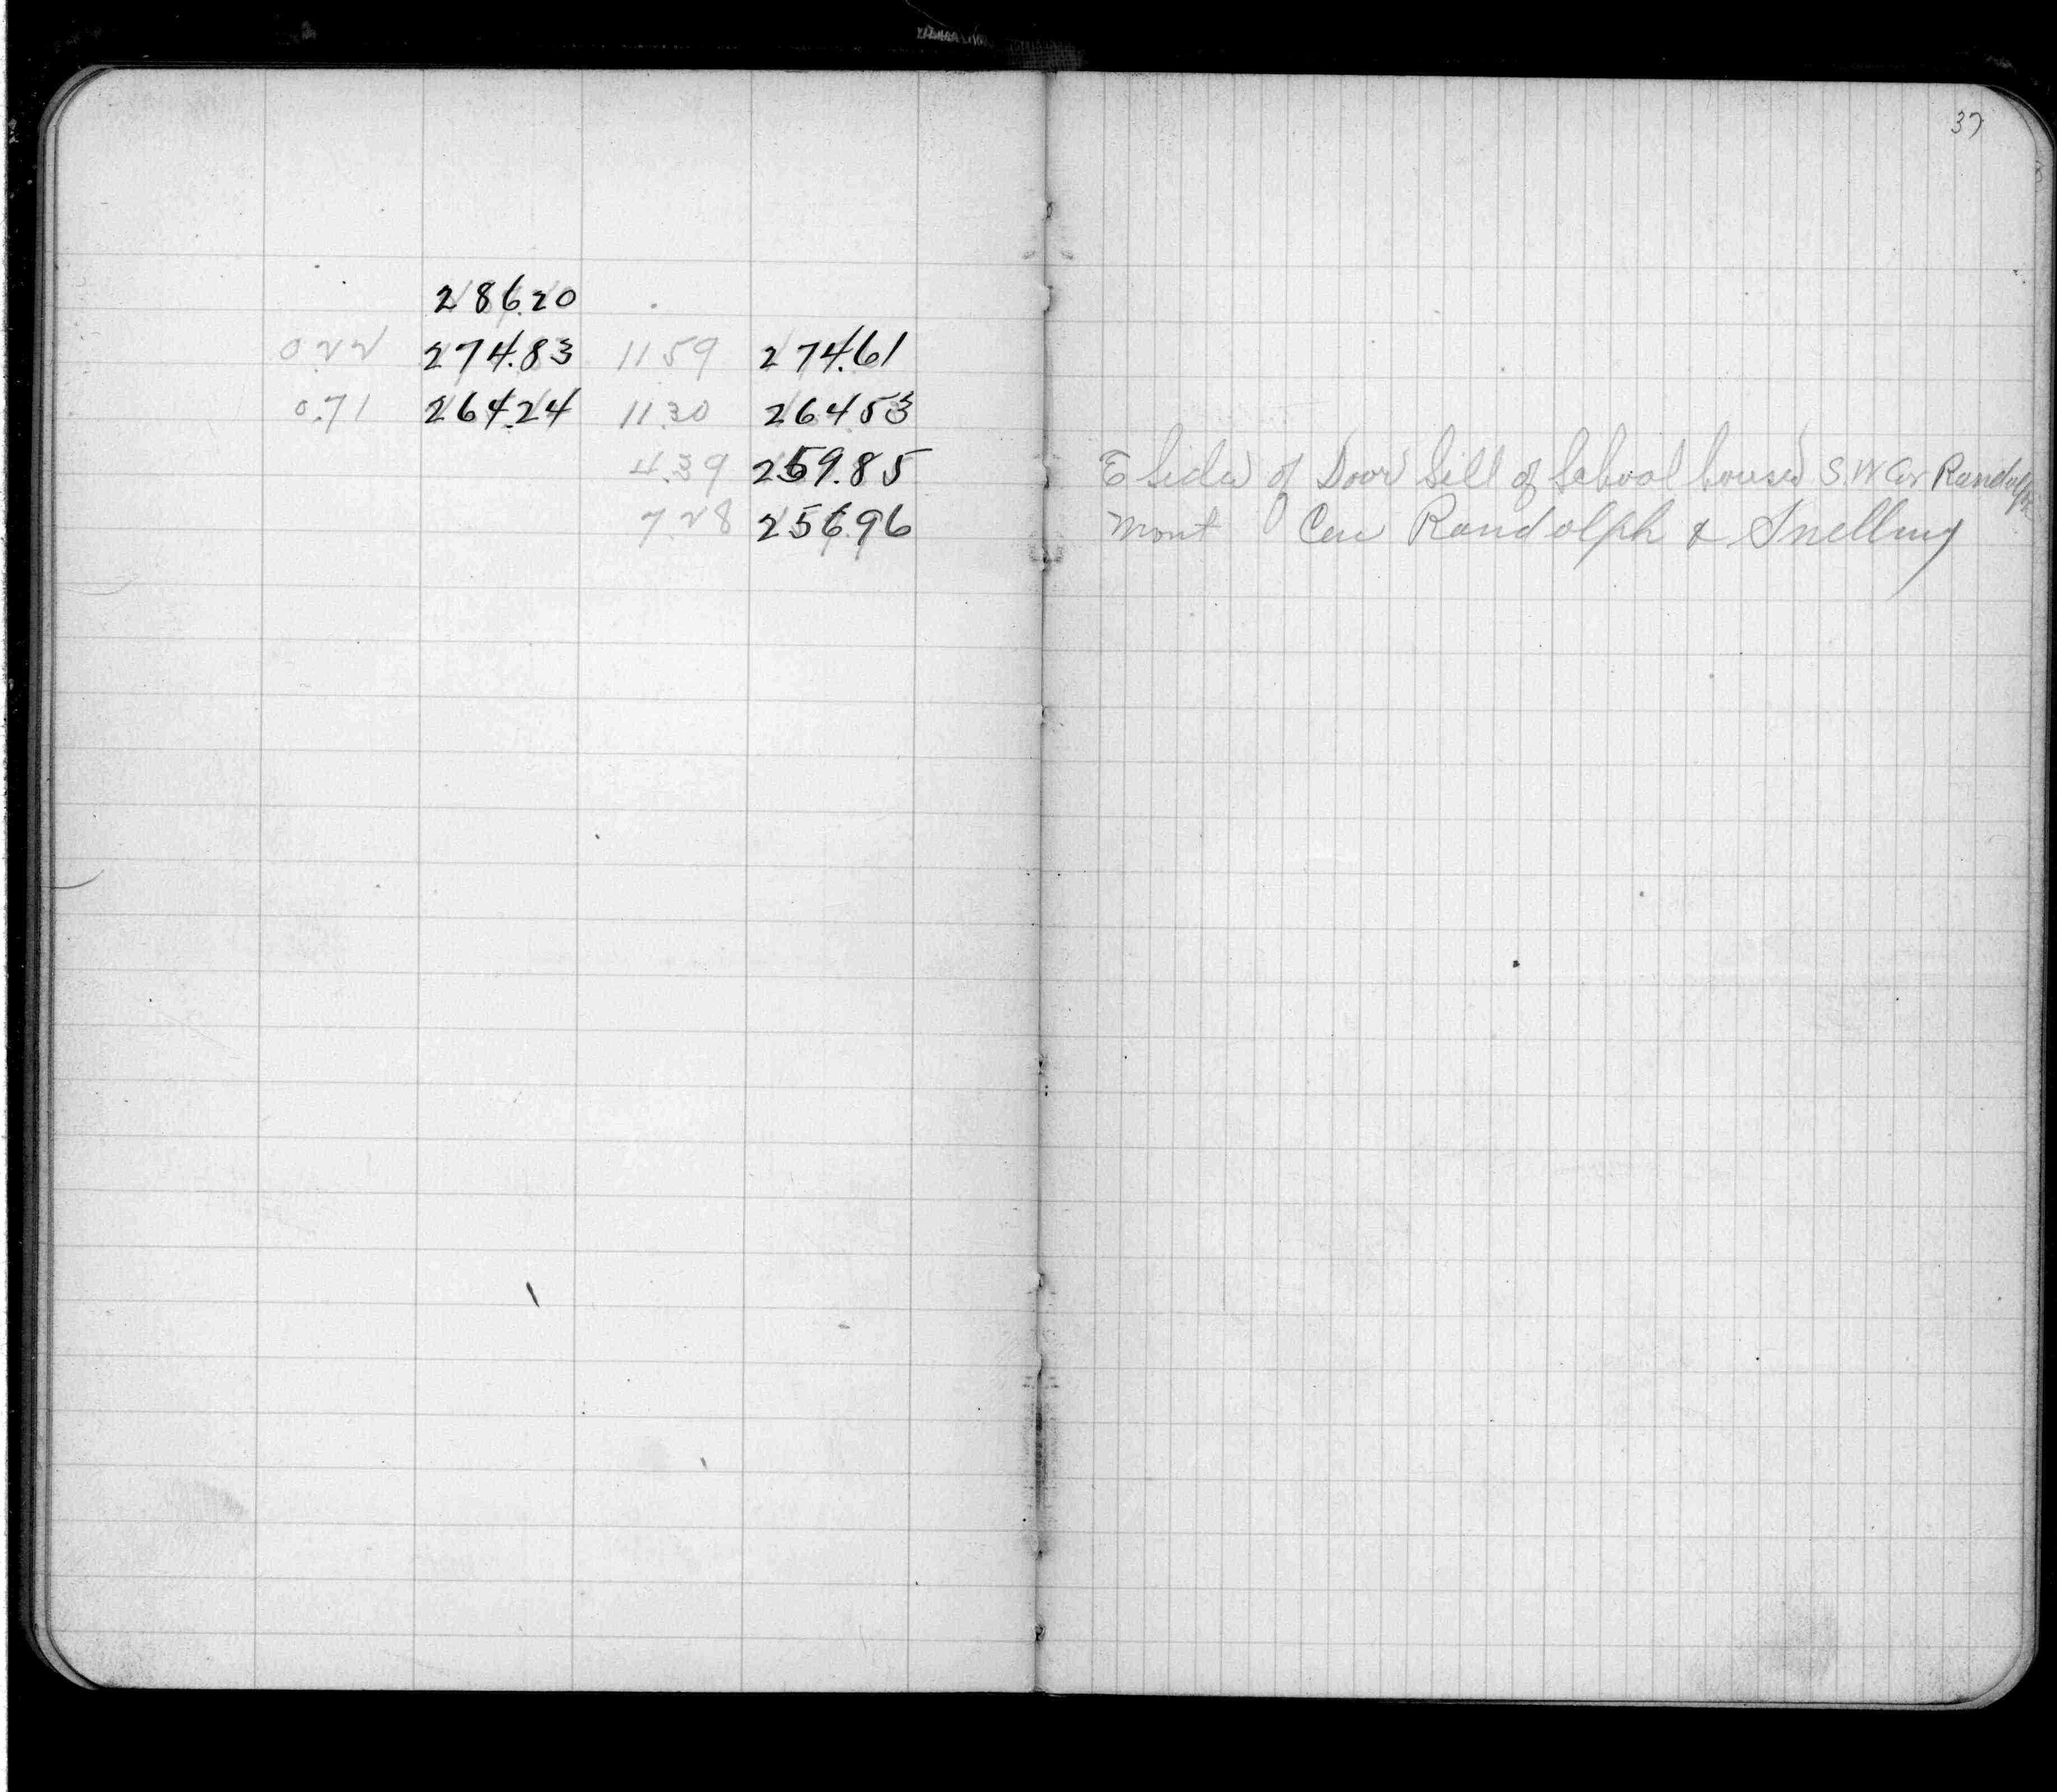 37
286.20
0.22 274.83 11.59 274.61
0.71 264.24 11.30 264.53
4.39 259.85 E Side of Door Sill of School house S.W Cor Randolph
7.28 256.96 Mont Cen Randolph & Snelling